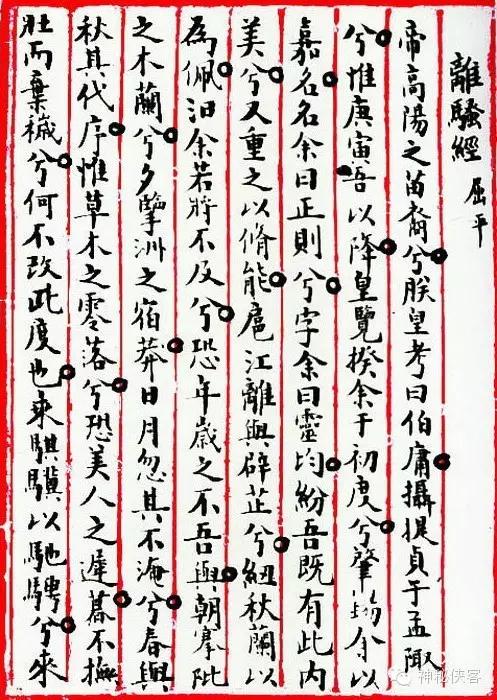 離騷經 屈平
帝高陽之苗裔兮朕皇考曰伯庸攝提貞于孟陬
兮惟庚寅吾以降皇覽揆余于初度兮肇錫余以
嘉名名余曰正則兮字余曰靈均紛吾既有此內
美兮又重之以脩能扈江離與辟芷兮紉秋蘭以
為佩汩余若將不及兮恐年歲之不吾與朝搴阰
之木蘭兮夕擥洲之宿莽日月忽其不淹兮春與
秋其代序惟草木之零落兮恐美人之遲暮不撫
壯而棄穢兮何不改此度也乘騏驥以馳騁兮來
神秘侠客